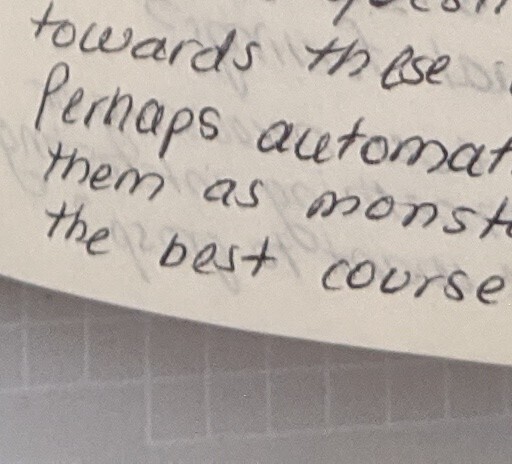 towards these
Perhaps automat
them as monst
the best course